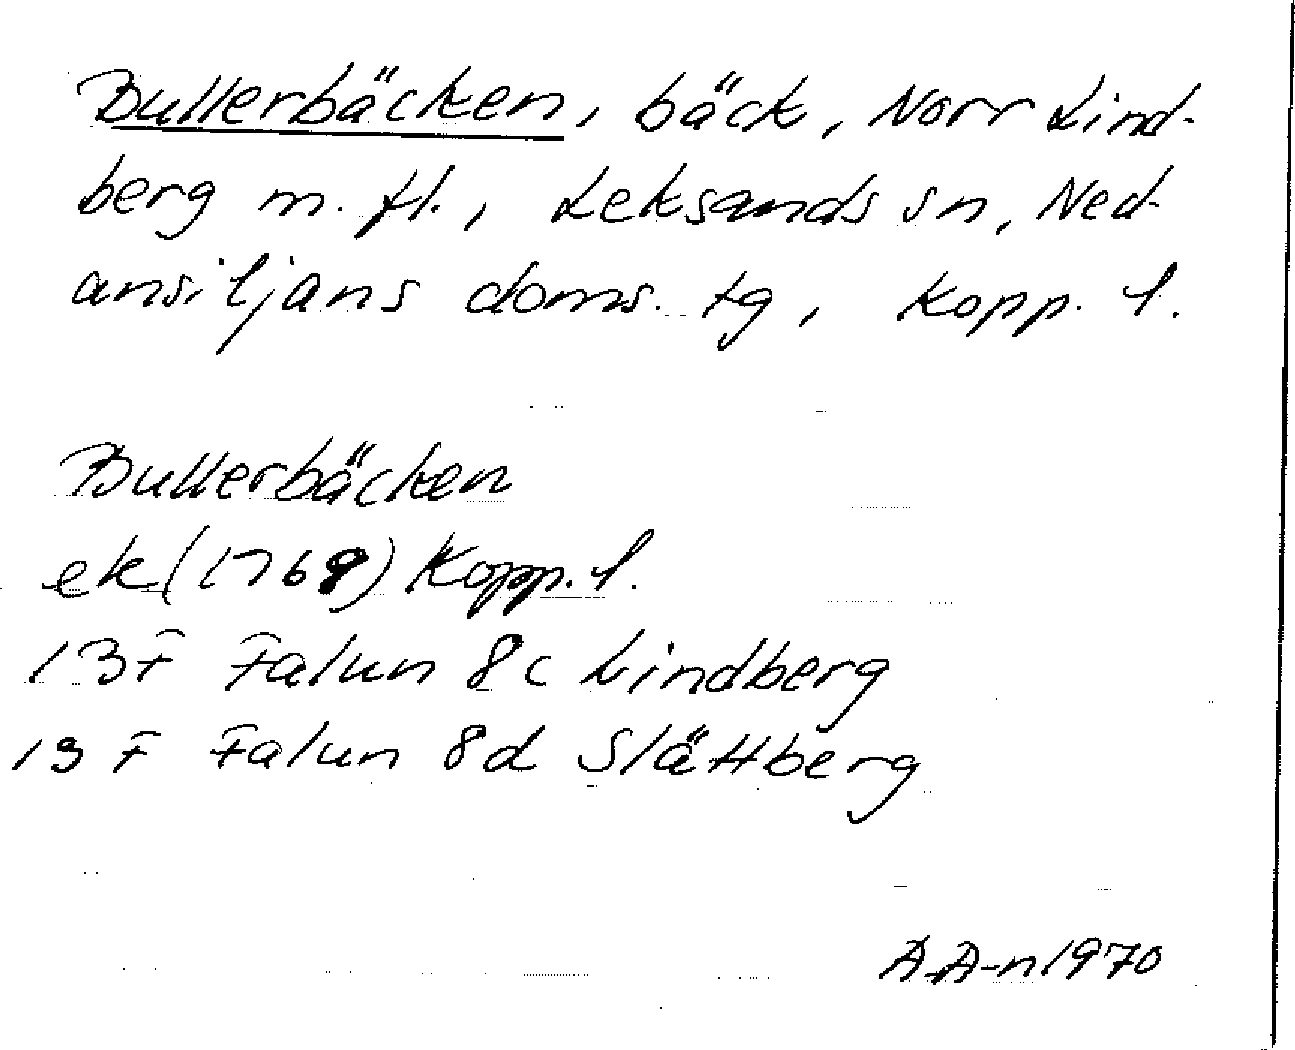 Bullerbäcken, bäck, Norr Lind-
berg m. fl., Leksands sn, Ned-
ansiljans doms. tg, Kopp. l.
Bullerbäcken
ek (1768) Kopp. l.
13F Falun 8c Lindberg
13 F Falun 8d Slättberg
A.A-n 1970